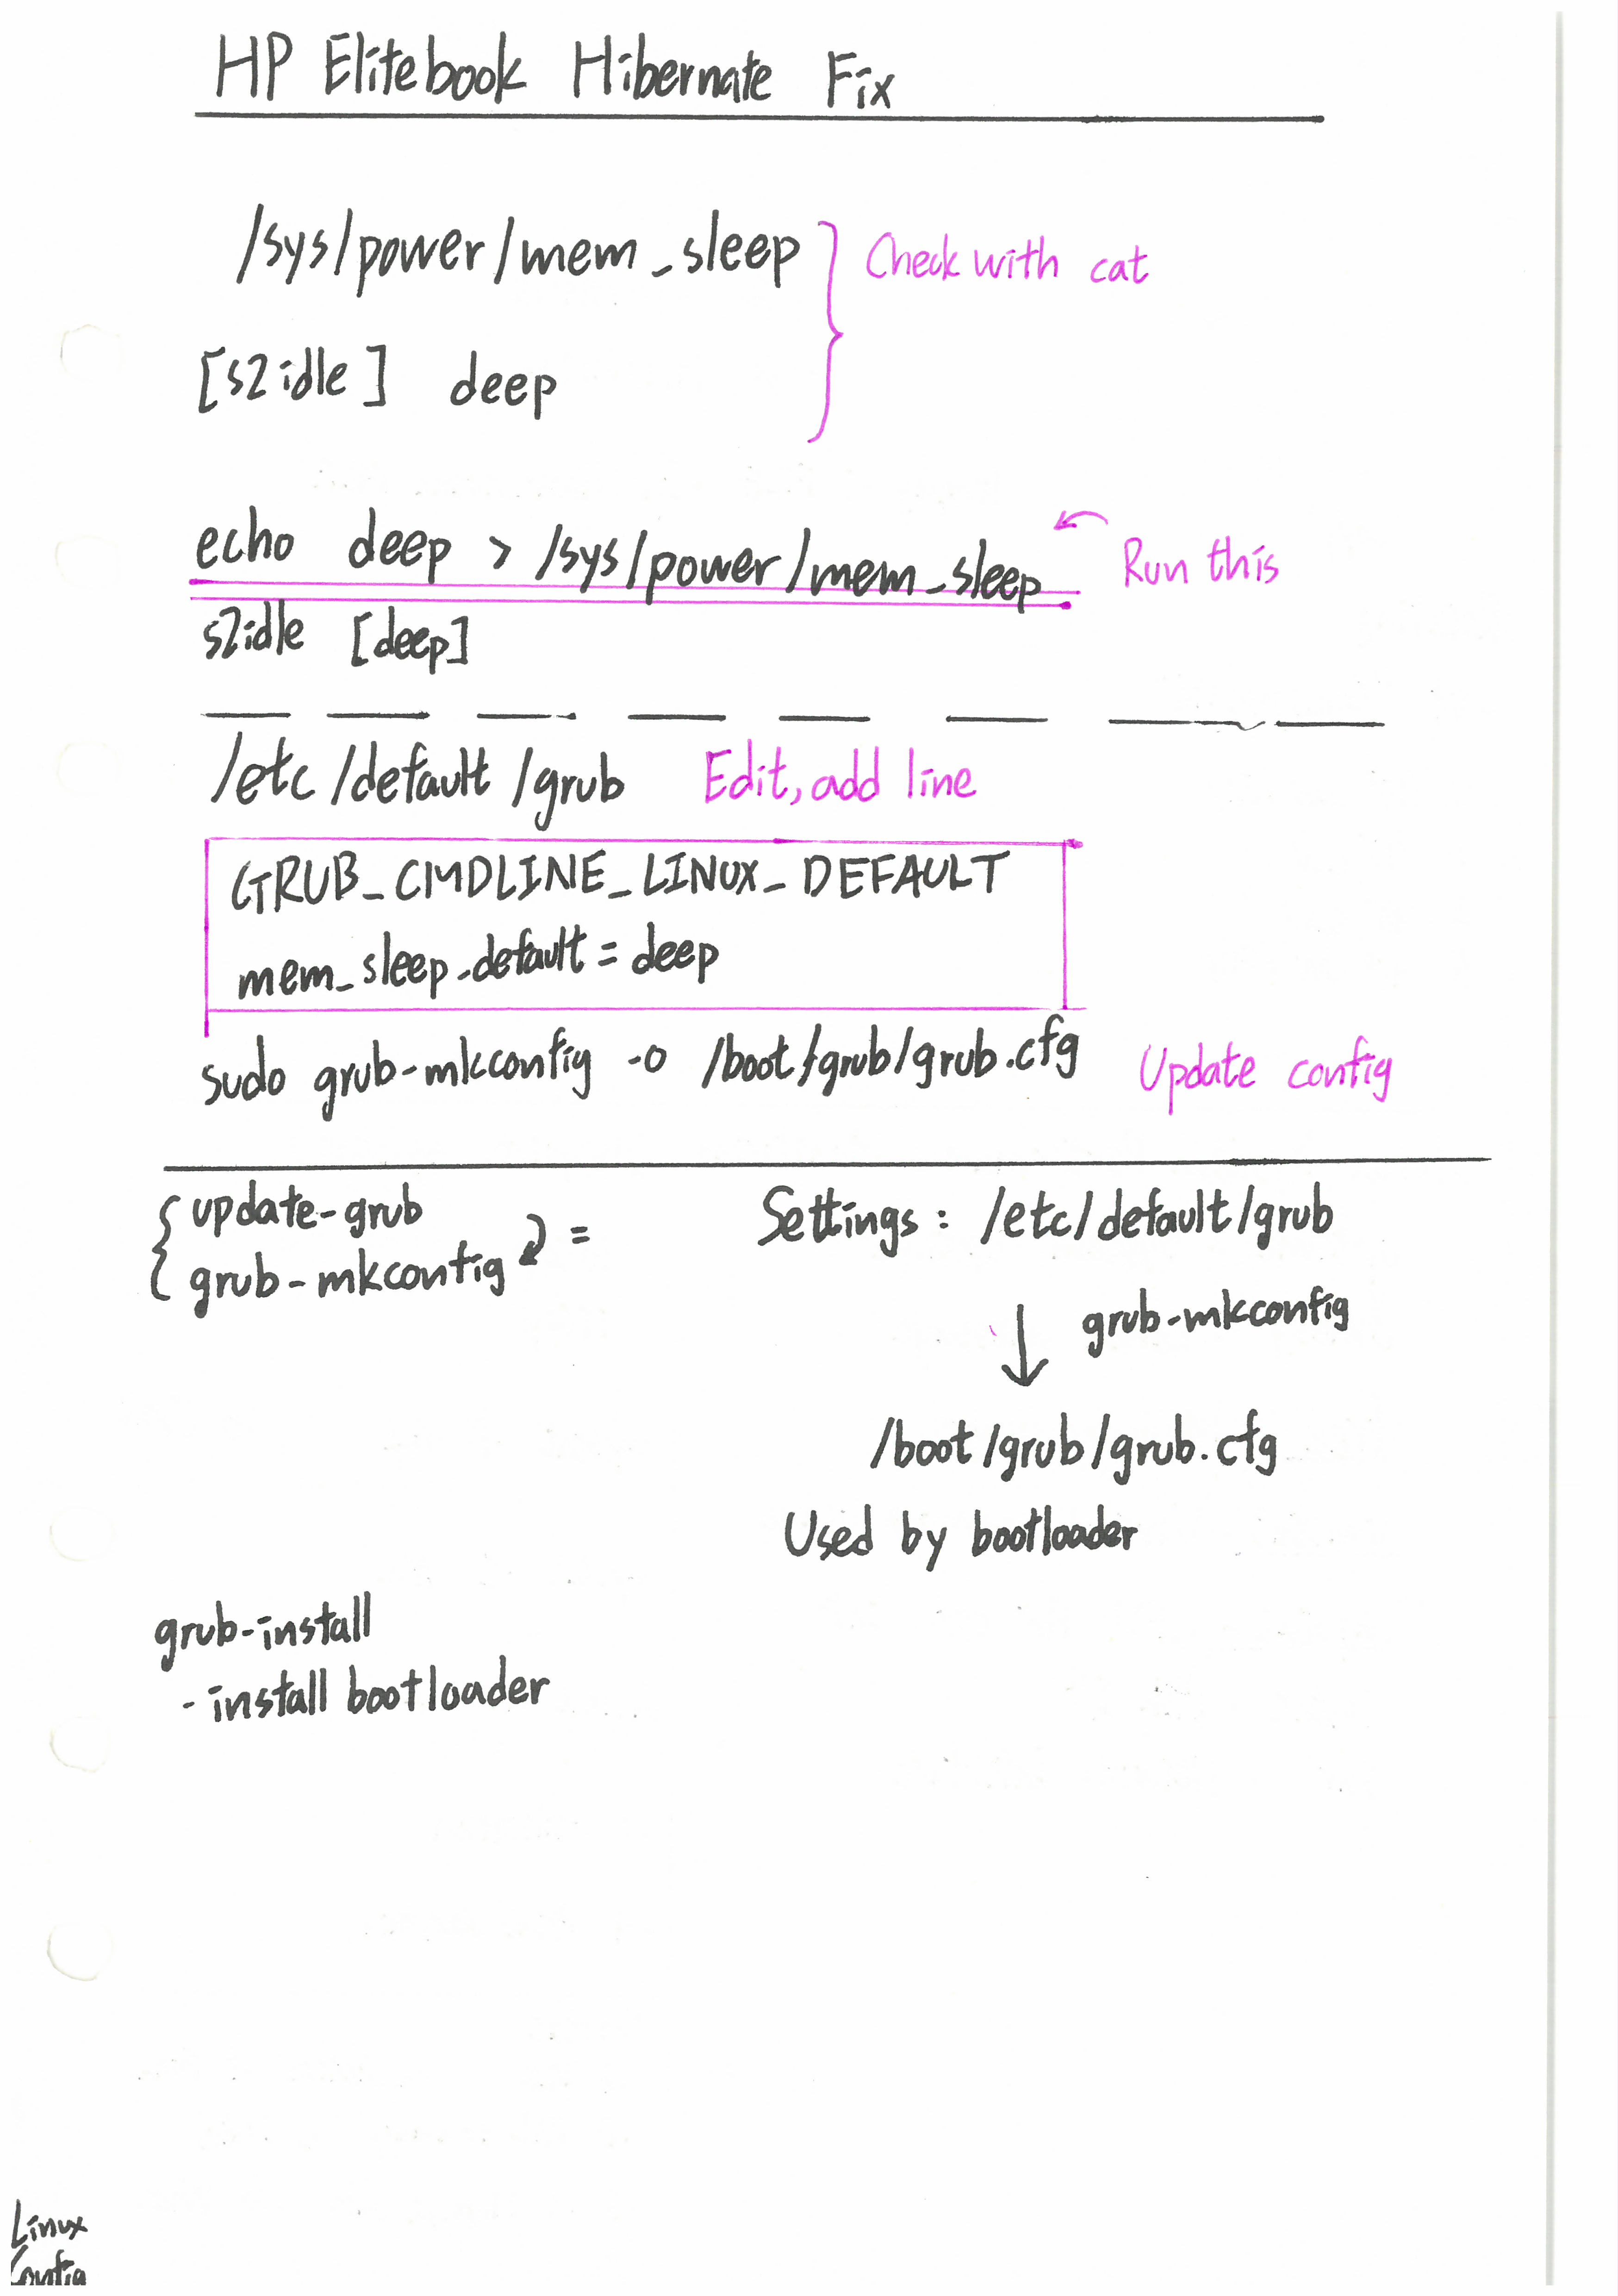 HP Elitebook Hibernate Fix
/sys/power/mem_sleep } Check with cat
[s2idle] deep
echo deep > /sys/power/mem_sleep Run this
s2idle [deep]
/etc/default/grub Edit, add line
GRUB_CMDLINE_LINUX_DEFAULT
mem_sleep_default = deep
sudo grub-mkconfig -o /boot/grub/grub.cfg Update config
{ update-grub
grub-mkconfig =
Settings: /etc/default/grub
↓ grub-mkconfig
/boot/grub/grub.cfg
Used by bootloader
grub-install
- install bootloader
Linux
Config